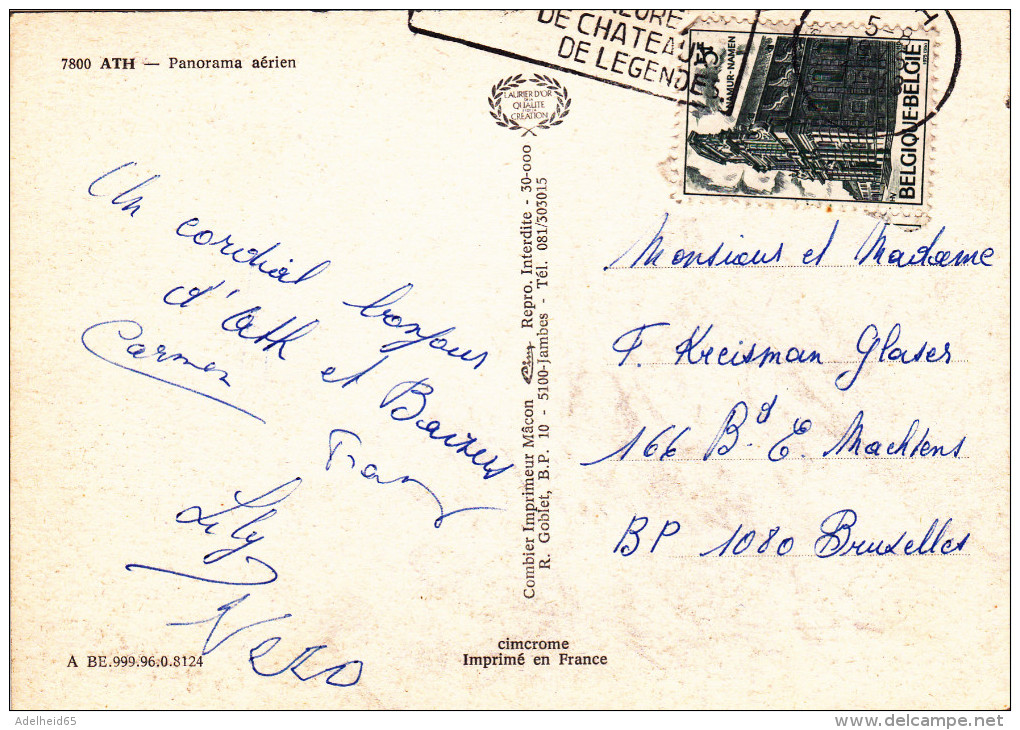 7800 ATH — Panorama aérien
LAURIER D'OR
DE LA
QUALITÉ
CRÉATION
Un cordial bonjour
d'Ath et Baizers
Carmen
Frans
Lily
Vero
A BE.999.96.0.8124
Combier Imprimeur Mâcon Cim Repro. Interdite - 30-000
R. Goblet, B.P. 10 - 5100-Jambes - Tél. 081/303015
cimcrome
Imprimé en France
DE CHATEAU
DE LEGENDE
5-8
NAMUR-NAMEN
BELGIQUE-BELGIË
HV
Monsieur et Madame
F. Kreisman Glaser
166 Bd E. Machtens
BP 1080 Bruxelles
Adelheid65
www.delcampe.net